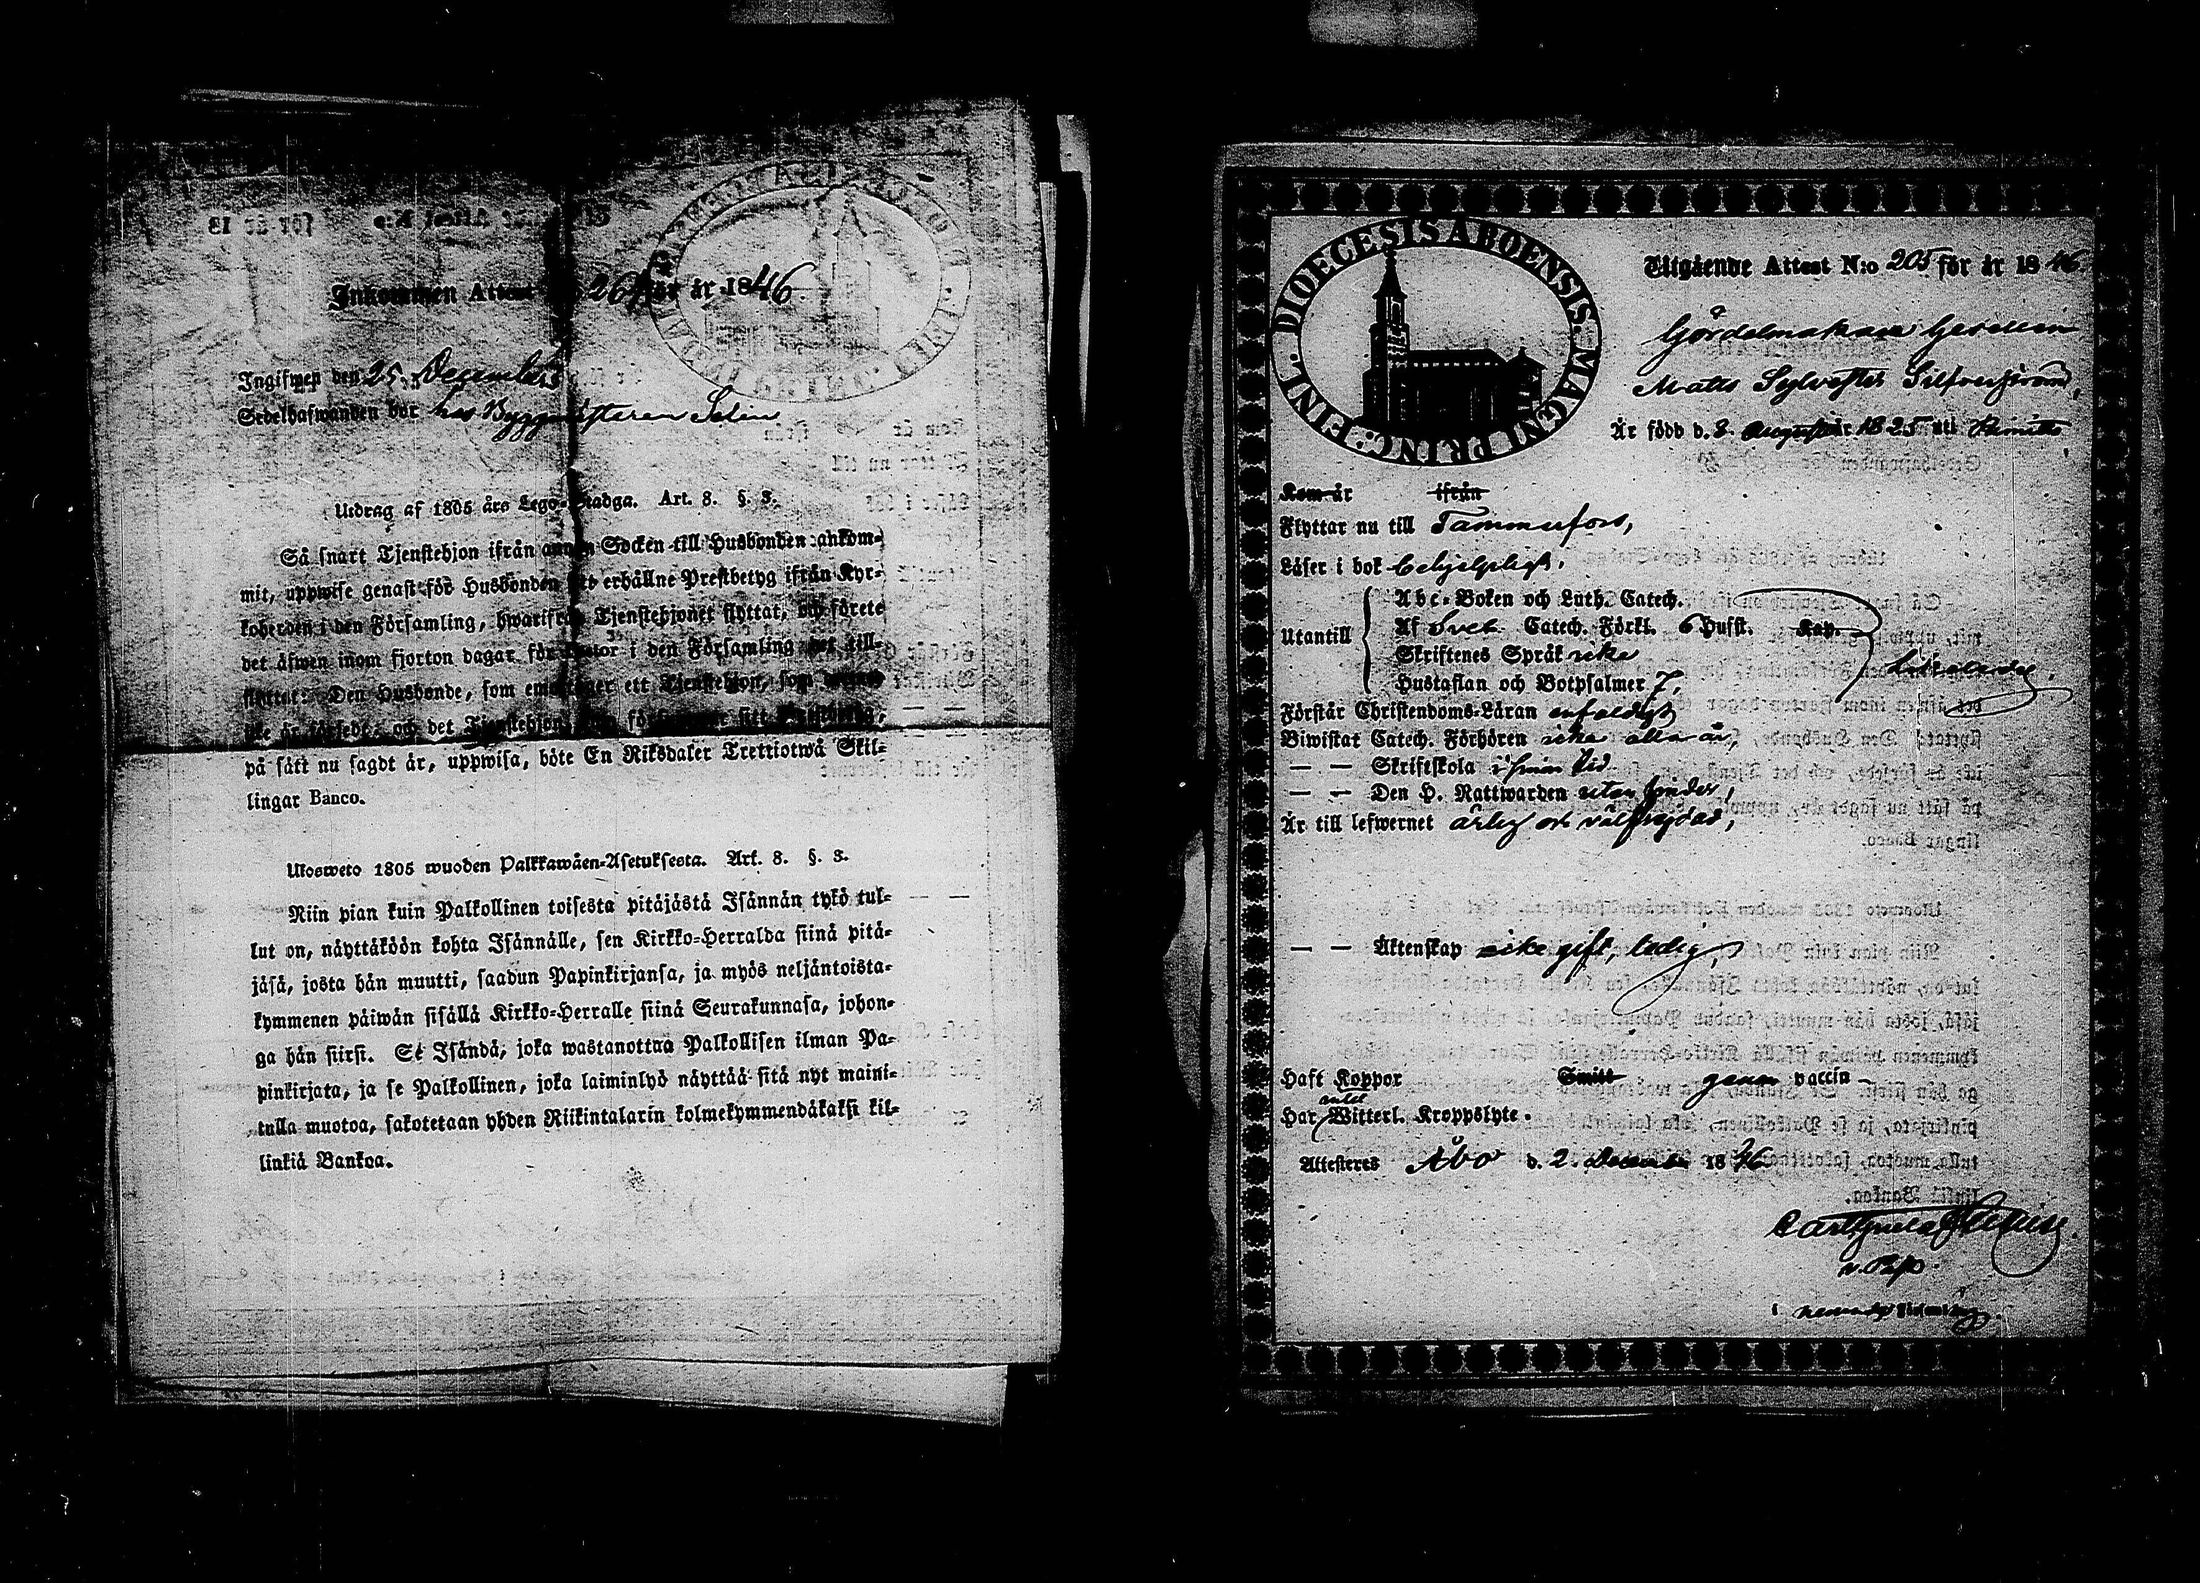 Inkommen Attest 264 för år 1846.
Ingifwen den 25. December
Sedelhafwanden bor hos Byggmästaren Selin
Utdrag af 1805 års Lego-Stadga. Art. 8. §. 3.
Så snart Tjenstehjon ifrån annan Socken till Husbonden ankom-
mit, uppwise genast för Husbonden sitt erhållne Prestbetyg ifrån Kyr-
koherden i den Församling, hwarifrån Tjenstehjonet flyttat, och förete
det äfwen inom fjorton dagar för Pastor i den Församling det till-
flyttat. Den Husbonde, som emottager ett Tjenstehjon, som
icke är försedt, och det Tjenstehjon, sitt
på sätt nu sagdt är, uppwisa, böte En Riksdaler Trettiotwå Skil-
lingar Banco.
Ulosweto 1805 wuoden Palkkawäen-Asetuksesta. Art. 8. §. 3.
Niin pian kuin Palkollinen toisesta pitäjästä Isännän tykö tul-
lut on, näyttäköön kohta Isännälle, sen Kirkko-Herralda siinä pitä-
jäsä, josta hän muutti, saadun Papinkirjansa, ja myös neljäntoista-
kymmenen päiwän sisällä Kirkko-Herralle siinä Seurakunnasa, johon-
ga hän siirsi. Se Isändä, joka wastanottaa Palkollisen ilman Pa-
pinkirjata, ja se Palkollinen, joka laiminlyö näyttää sitä nyt maini-
tulla muotoa, sakotetaan yhden Riikintalarin kolmekymmendäkaksi kil-
linkiä Bankoa.
DIOECESIS ABOENSIS. MAGNI PRINC: FINL.
Utgående Attest N:o 205 för år 1846
Gördelmakare Gesellen
Matts Sylvester Silfverstrand,
Är född d. 8. Augusti år 1825 uti Pemar
Kom år ifrån
Flyttar nu till Tammerfors,
Läser i bok behjelpligt,
Utantill
Abc-Boken och Luth. Catech.
Af Sveb. Catech. Förkl. 6 Hufst. Kap.
Skriftenes Språk icke
Hustaflan och Botpsalmer 7,
Förstår Christendoms-Läran enfaldigt
Biwistat Catech. Förhören icke alla år,
— — Skriftskola i sinom tid
— — Den H. Nattwarden utan hinder,
Är till lefwernet ärlig och välfrejdad,
— — Äktenskap icke gift, ledig,
Haft Koppor Smitt genom vaccin
Har intet Witterl. Kroppslyte.
Attesteras Åbo d. 2. December 1846
v. P.